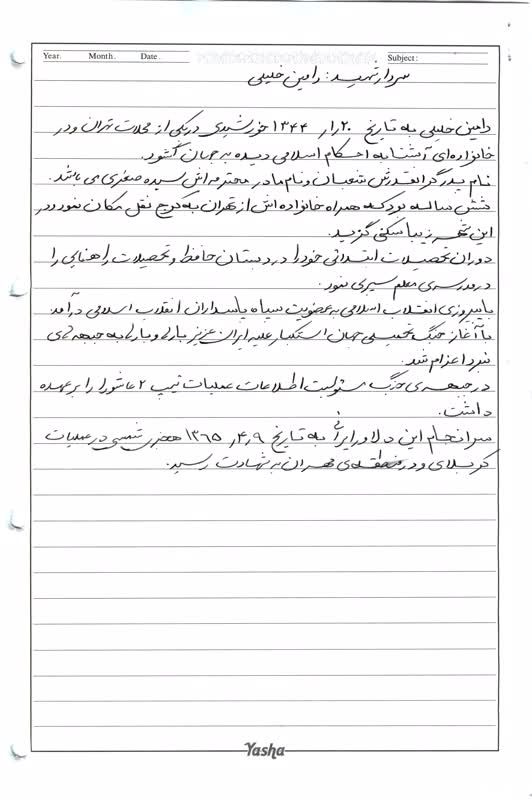 Year. Month. Date. Subject:
سردار شهید: رامین خلیلی
رامین خلیلی به تاریخ ۱۳۴۴ خورشیدی در یکی از محلات تهران و در
خانواده‌ای آشنا به احکام اسلامی دیده به جهان گشود.
نام پدر گرانقدرش شعبان و نام مادر محترمه‌اش سیده صغری می باشد.
شش ساله بود که همراه خانواده اش از تهران به کرج نقل مکان نمود و در
این شهر زیبا سکنی گزید.
دوران تحصیلات ابتدائی خود را در دبستان حافظ و تحصیلات راهنمایی را
در مدرسه‌ی معلم سپری نمود.
با پیروزی انقلاب اسلامی به عضویت سپاه پاسداران انقلاب اسلامی درآمد
با آغاز جنگ تحمیلی جهان استکبار علیه ایران عزیز بارها و بارها به جبهه‌های
نبرد اعزام شد.
در جبهه‌ی جنگ مسئولیت اطلاعات عملیات تیپ ۲ عاشورا را بر عهده
داشت.
سرانجام این دلاور ایرانی به تاریخ ۱۳۶۵/۴/۹ هجری شمسی در عملیات
کربلای و در منطقه‌ی مهران به شهادت رسید.
Yasha